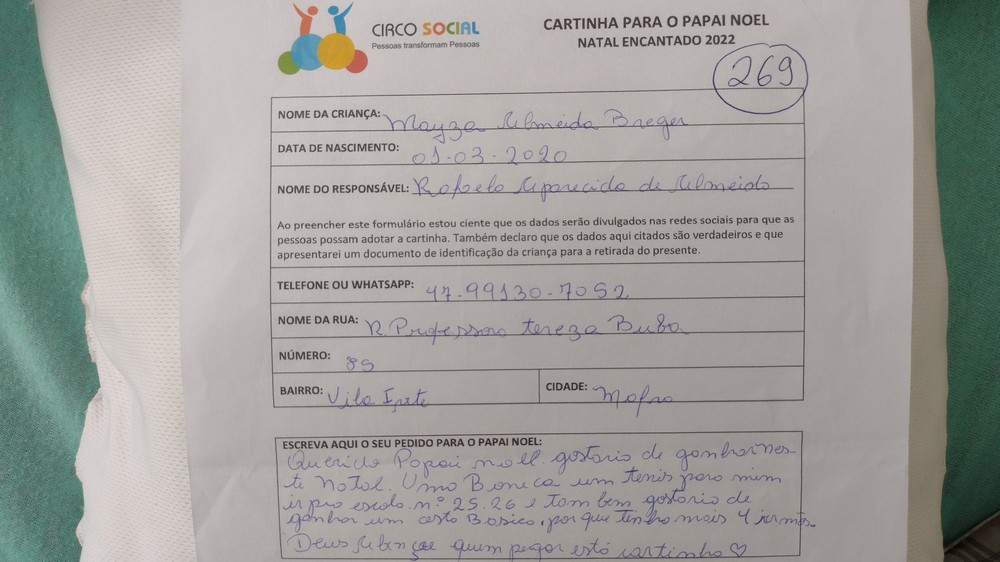 CIRCO SOCIAL
Pessoas transformam Pessoas
CARTINHA PARA O PAPAI NOEL
NATAL ENCANTADO 2022
269
NOME DA CRIANÇA: Mayza Almeida Breger
DATA DE NASCIMENTO: 01-03-2020
NOME DO RESPONSÁVEL: Rafaela Aparecida de Almeida
Ao preencher este formulário estou ciente que os dados serão divulgados nas redes sociais para que as
pessoas possam adotar a cartinha. Também declaro que os dados aqui citados são verdadeiros e que
apresentarei um documento de identificação da criança para a retirada do presente.
TELEFONE OU WHATSAPP: 47-99130-7052
NOME DA RUA: R. Professora tereza Buba
NÚMERO: 89
BAIRRO: Vila CIDADE: Mafra
ESCREVA AQUI O SEU PEDIDO PARA O PAPAI NOEL:
Querido Papai noell. gostaria de ganhar nes-
te Natal. Uma Boneca um tenis para mim
ir pra escola nº 25.26 e tam bem gostaria de
ganhar um cesta Basica, por que tenho mais 4 irmãs
Deus Abençoe quem pegar está cartinha ♡